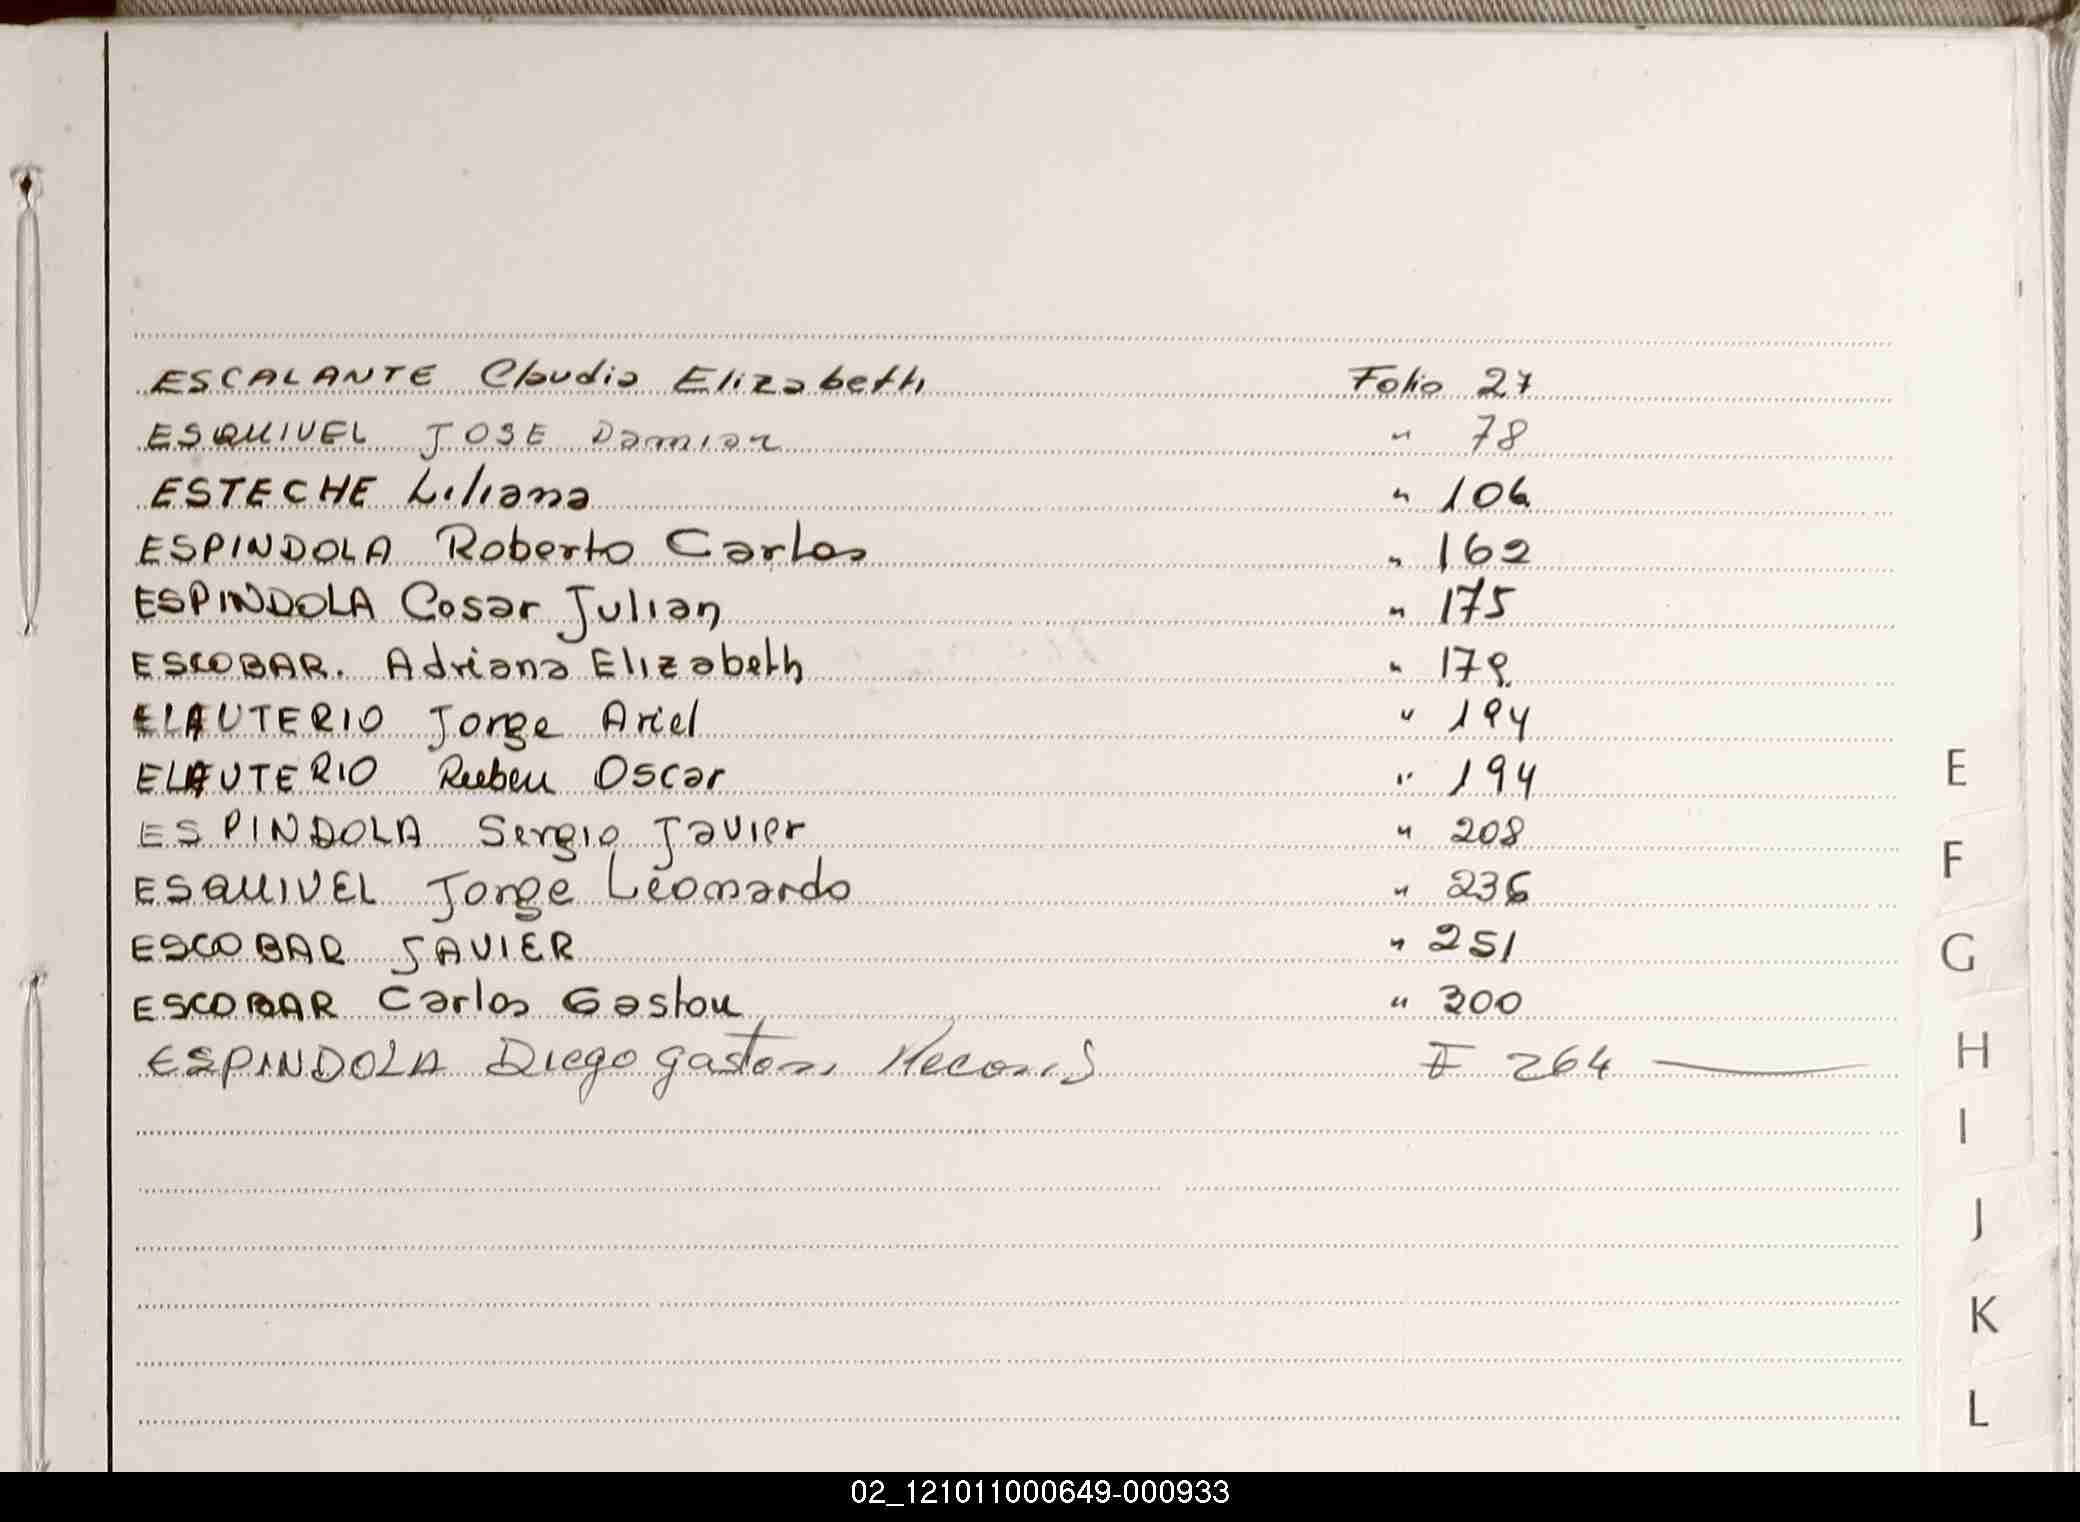 ESCALANTE Claudia Elizabeth Folio 27
ESQUIVEL JOSE Damian " 78
ESTECHE Liliana " 106
ESPINDOLA Roberto Carlos " 162
ESPINDOLA Cesar Julian " 175
ESCOBAR. Adriana Elizabeth " 179
ELEUTERIO Jorge Ariel " 194
ELEUTERIO Ruben Oscar " 194
ESPINDOLA Sergio Javier " 208
ESQUIVEL Jorge Leonardo " 236
ESCOBAR JAVIER " 251
ESCOBAR Carlos Gaston " 300
ESPINDOLA Diego gaston F 264
E
F
G
H
I
J
K
L
02_121011000649-000933